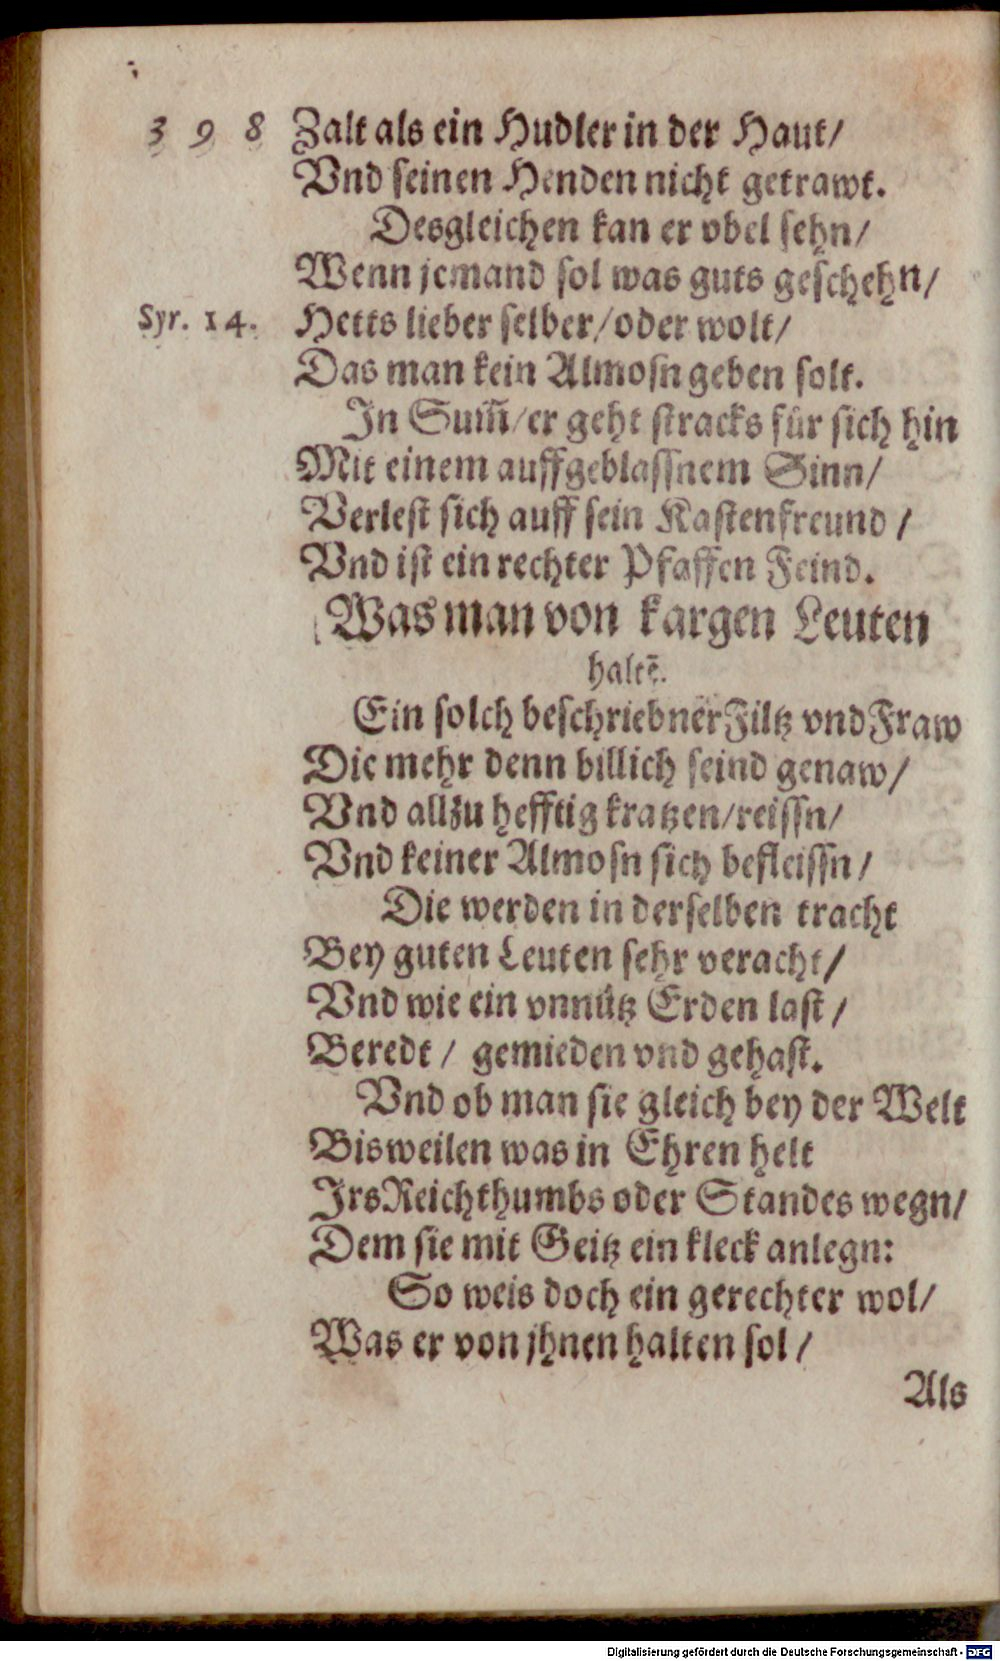 398 Zalt als ein Hudler in der Haut/
Vnd seinen Henden nicht getrawt.
Desgleichen kan er vbel sehn/
Wenn jemand sol was guts geschehn/
Syr. 14. Hetts lieber selber/oder wolt/
Das man kein Almosn geben solt.
In Sum̃/er geht stracks für sich hin
Mit einem auffgeblassnem Sinn/
Verlest sich auff sein Kastenfreund/
Vnd ist ein rechter Pfaffen Feind.
Was man von kargen Leuten
haltē.
Ein solch beschriebner Filtz vnd Fraw
Die mehr denn billich seind genaw/
Vnd allzu hefftig kratzen/reissn/
Vnd keiner Almosn sich befleissn/
Die werden in derselben tracht
Bey guten Leuten sehr veracht/
Vnd wie ein vnnütz Erden last/
Beredt/ gemieden vnd gehast.
Vnd ob man sie gleich bey der Welt
Bisweilen was in Ehren helt
Irs Reichthumbs oder Standes wegn/
Dem sie mit Geitz ein kleck anlegn:
So weis doch ein gerechter wol/
Was er von jhnen halten sol/
Als
Digitalisierung gefördert durch die Deutsche Forschungsgemeinschaft - DFG